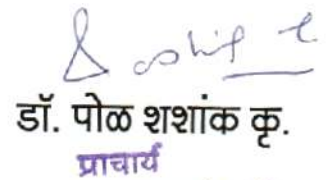 डॉ. पोळ शशांक कृ.
प्राचार्य